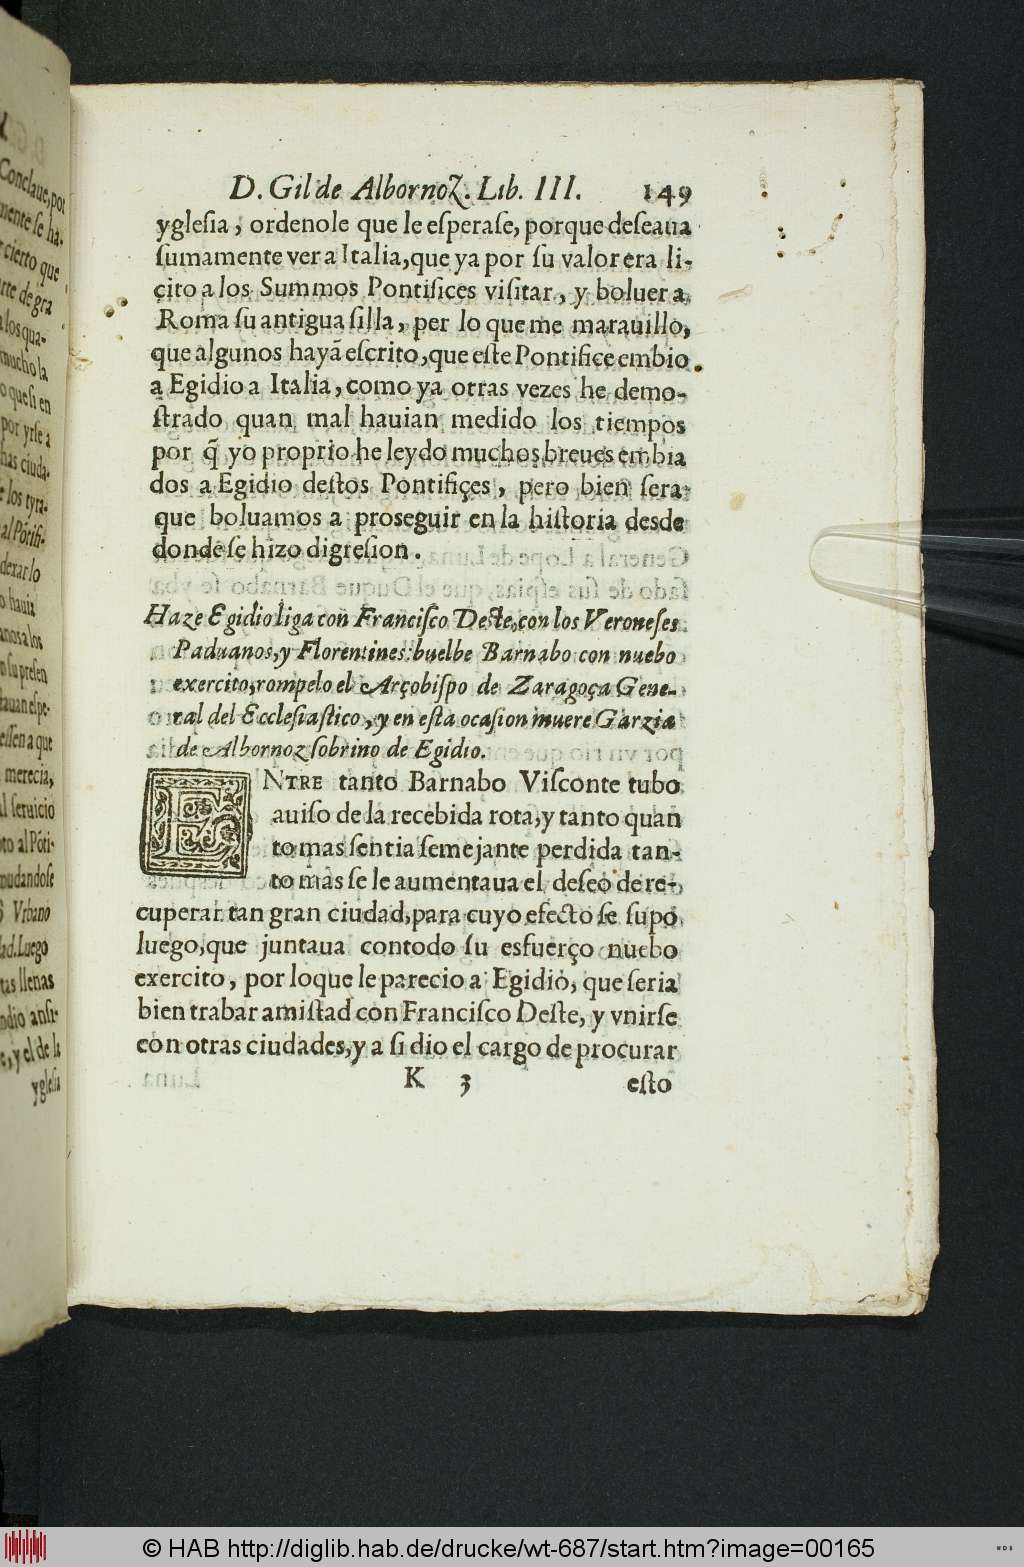 D. Gil de Albornoz. Lib. III. 149
yglesia, ordenole que le esperase, porque deseaua
sumamente ver a Italia, que ya por su valor era li-
çito a los Summos Pontifices visitar, y boluer a
Roma su antigua silla, per lo que me marauillo,
que algunos hayã escrito, que este Pontifice embio
a Egidio a Italia, como ya otras vezes he demo-
strado quan mal hauian medido los tiempos
por q̃ yo proprio he leydo muchos breues embia
dos a Egidio destos Pontifiçes, pero bien sera
que boluamos a proseguir en la historia desde
donde se hizo digresion.
Haze Egidio liga con Francisco Deste, con los Veroneses
Paduanos, y Florentines: buelbe Barnabo con nuebo
exercito, rompelo el Arçobispo de Zaragoça Gene-
ral del Ecclesiastico, y en esta ocasion muere Garzia
de Albornoz sobrino de Egidio.
ENTRE tanto Barnabo Visconte tubo
auiso de la recebida rota, y tanto quan
to mas sentia semejante perdida tan-
to mas se le aumentaua el deseo de re-
cuperar tan gran ciudad, para cuyo efecto se supo
luego, que juntaua contodo su esfuerço nuebo
exercito, por loque le parecio a Egidio, que seria
bien trabar amistad con Francisco Deste, y vnirse
con otras ciudades, y a si dio el cargo de procurar
K 3 esto
Conclaue, por
mente se ha-
cierto que
rte de gra
a los qua-
mucho la
o que si en
por yrse a
has ciuda-
e los tyra-
al Põtifi-
dexar lo
o hauia
anos a los
n su presen
tauan el pe-
essen a que
merecia,
al seruicio
oto al Põti-
mudandose
õ Vrbano
dad. Luego
tas llenas
ndio ansi-
e, y el de la
yglesia
© HAB http://diglib.hab.de/drucke/wt-687/start.htm?image=00165